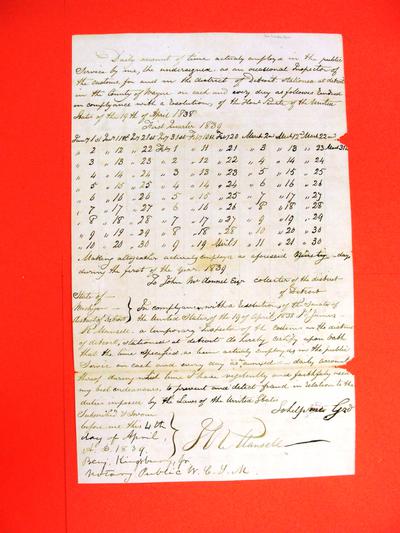 Daily account of time actualy employd in the public
Service by me, the undersigned, as an occasional Inspector of
the customs for and in the district of Detroit stationed at detroit
in the County of Wayne on each and every day as follows
in compliance with a resolution, of the Senate of the United
States of the 19th of April 1838
First Quarter 1839
" 2 " 12 " 22 Feby 1 " 11 " 21 " 3 " 13 " 23
" 3 " 13 " 23 " 2 " 12 " 22 " 4 " 14 " 24
" 4 " 14 " 24 " 3 " 13 " 23 " 5 " 15 " 25
" 5 " 15 " 25 " 4 " 14 " 24 " 6 " 16 " 26
" 6 " 16 " 26 " 5 " 15 " 25 " 7 " 17 " 27
" 7 " 17 " 27 " 6 " 16 " 26 " 8 " 18 " 28
" 8 " 18 " 28 " 7 " 17 " 27 " 9 " 19 " 29
" 9 " 19 " 29 " 8 " 18 " 28 " 10 " 20 " 30
" 10 " 20 " 30 " 9 " 19 " 11 " 21
Making altogether actualy employd as aforesaid Ninety days
during the first of the year 1839
To John Mc donnel Esqr collector of the district
of Detroit
State of
Michigan
District of Detroit
In compliance with a Resolution of the Senate of
the United States of the 19 of April 1838 I James
a temporary Inspector of the customs in the district
of detroit, stationed at detroit do hereby certify upon oath
that the time specified, as been actualy employd in the public
Service on each and every day as named in daily account
thereof during which time I have vigilantly and faithfully used
my best endeavours, to prevent and detect fraud in relation to the
duties imposed by the Laws of the United States
So help me God
Subscribed & Sworn
before me this 4th
day of April
A. D. 1839.
Benj. Kingsbury, Jr.
Notary Public W. C. S. M.